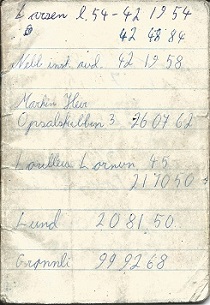 Larsen l. 54-42 19 54
42 42 84
Nibb inst. avd. 42 19 58.
Martin Heir
Opsalskilben 3 26 07 62
Lorillus Lornum 45
21 70 50
Lund 20 81 50
Grønnli 99 92 68